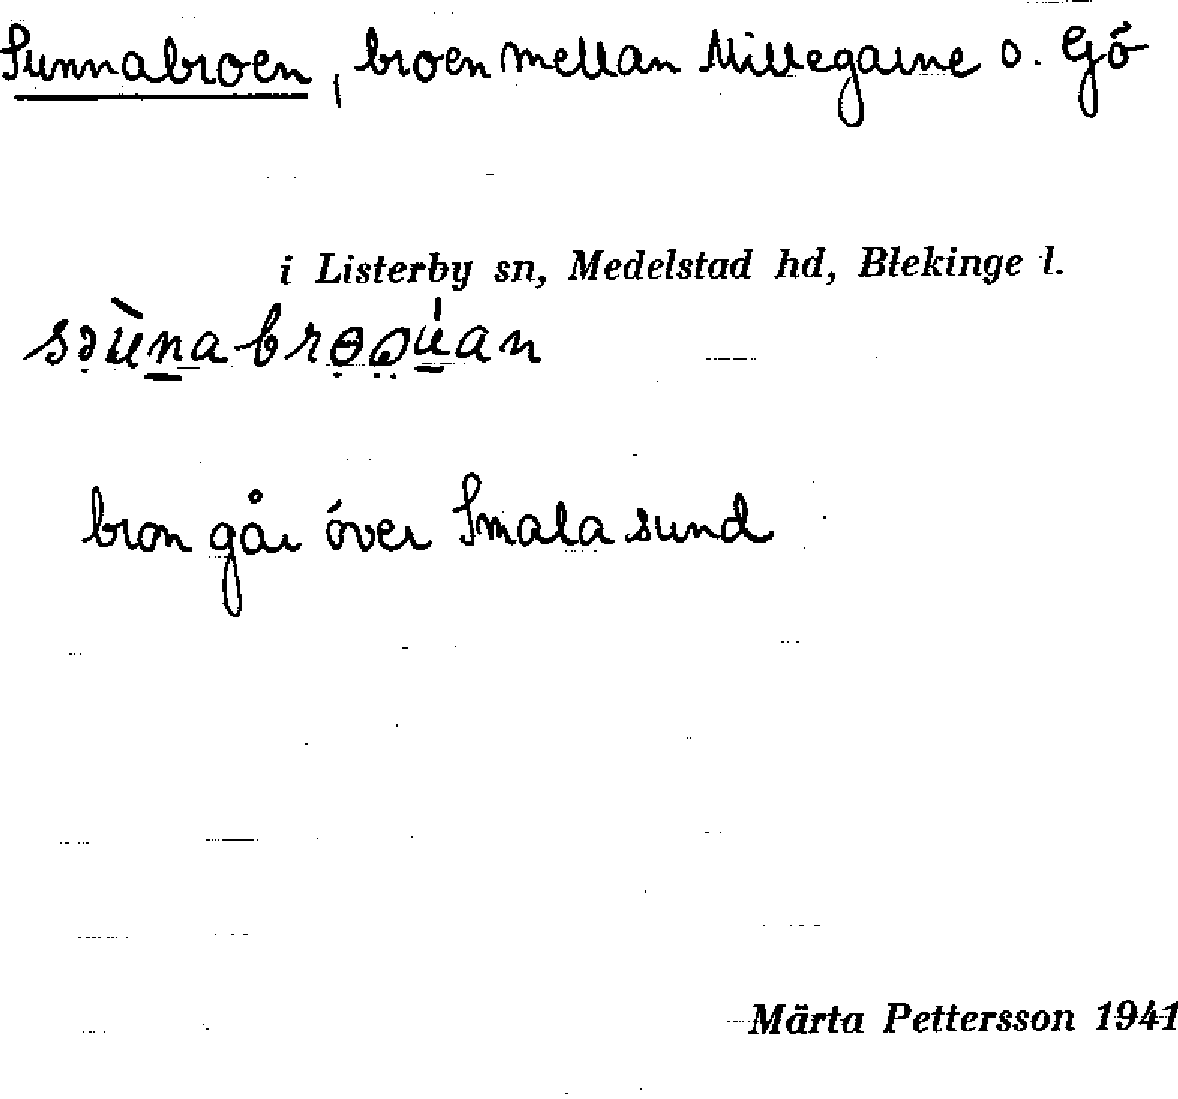 Sunnabroen, broen mellan Millegarne o. Gö
i Listerby sn, Medelstad hd, Blekinge l.
bron går över Smala sund
Märta Pettersson 1941